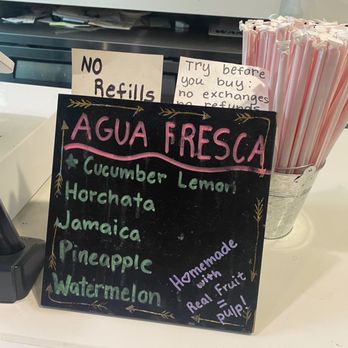 NO
Refills
Try before
you buy:
no exchanges
no refunds
AGUA FRESCA
+ Cucumber Lemon
Horchata
Jamaica
Pineapple
Watermelon
Homemade
with
Real Fruit
=
pulp!